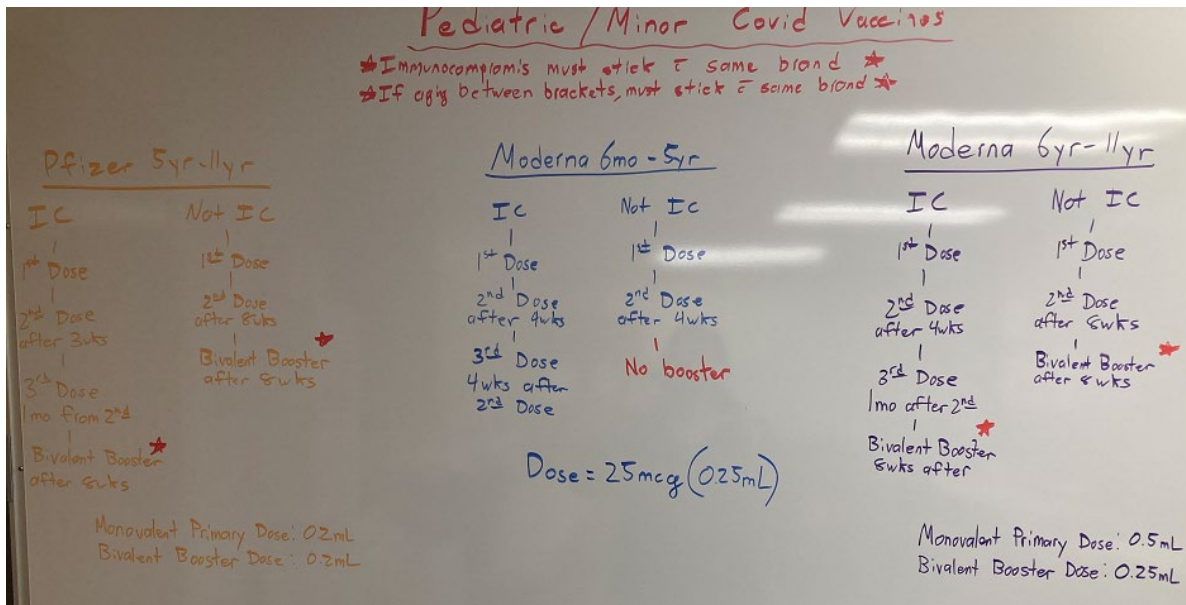 Pediatric / Minor Covid Vaccines
★Immunocompromis must stick c̄ same brand ★
★If aging between brackets, must stick c̄ same brand ★
Pfizer 5yr-11yr
IC
1st Dose
2nd Dose
after 3wks
3rd Dose
1mo from 2nd
Bivalent Booster ★
after 8wks
Not IC
1st Dose
2nd Dose
after 8wks
★
Bivalent Booster
after 8wks
Monovalent Primary Dose: 0.2mL
Bivalent Booster Dose: 0.2mL
Moderna 6mo-5yr
IC
1st Dose
2nd Dose
after 4wks
3rd Dose
4wks after
2nd Dose
Not IC
1st Dose
2nd Dose
after 4wks
No booster
Dose = 25mcg (0.25mL)
Moderna 6yr-11yr
IC
1st Dose
2nd Dose
after 4wks
3rd Dose
1mo after 2nd
★
Bivalent Booster
8wks after
Not IC
1st Dose
2nd Dose
after 8wks
Bivalent Booster ★
after 8wks
Monovalent Primary Dose: 0.5mL
Bivalent Booster Dose: 0.25mL